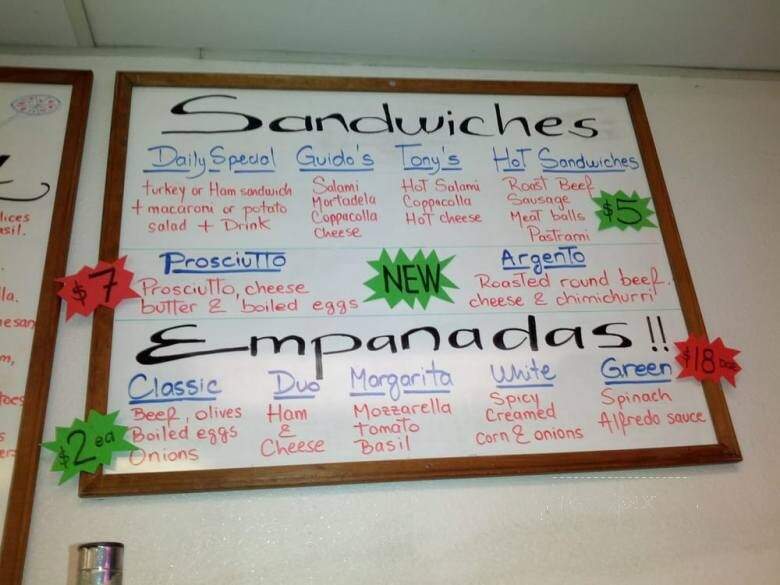 Sandwiches
Daily Special
turkey or Ham sandwich
+ macaroni or potato
salad + Drink
Guido's
Salami
Mortadela
Coppacolla
cheese
Tony's
Hot Salami
Coppacolla
Hot cheese
Hot Sandwiches
Roast Beef
Sausage
Meat balls
Pastrami
$5
$7
Prosciutto
Prosciutto, cheese
butter & boiled eggs
NEW
Argento
Roasted round beef.
cheese & chimichurri
Empanadas!!
$18
Classic
Beef, olives
Boiled eggs
Onions
$2 ea
Duo
Ham
&
Cheese
Margarita
Mozzarella
tomato
Basil
White
Spicy
Creamed
corn & onions
Green
Spinach
Alfredo sauce